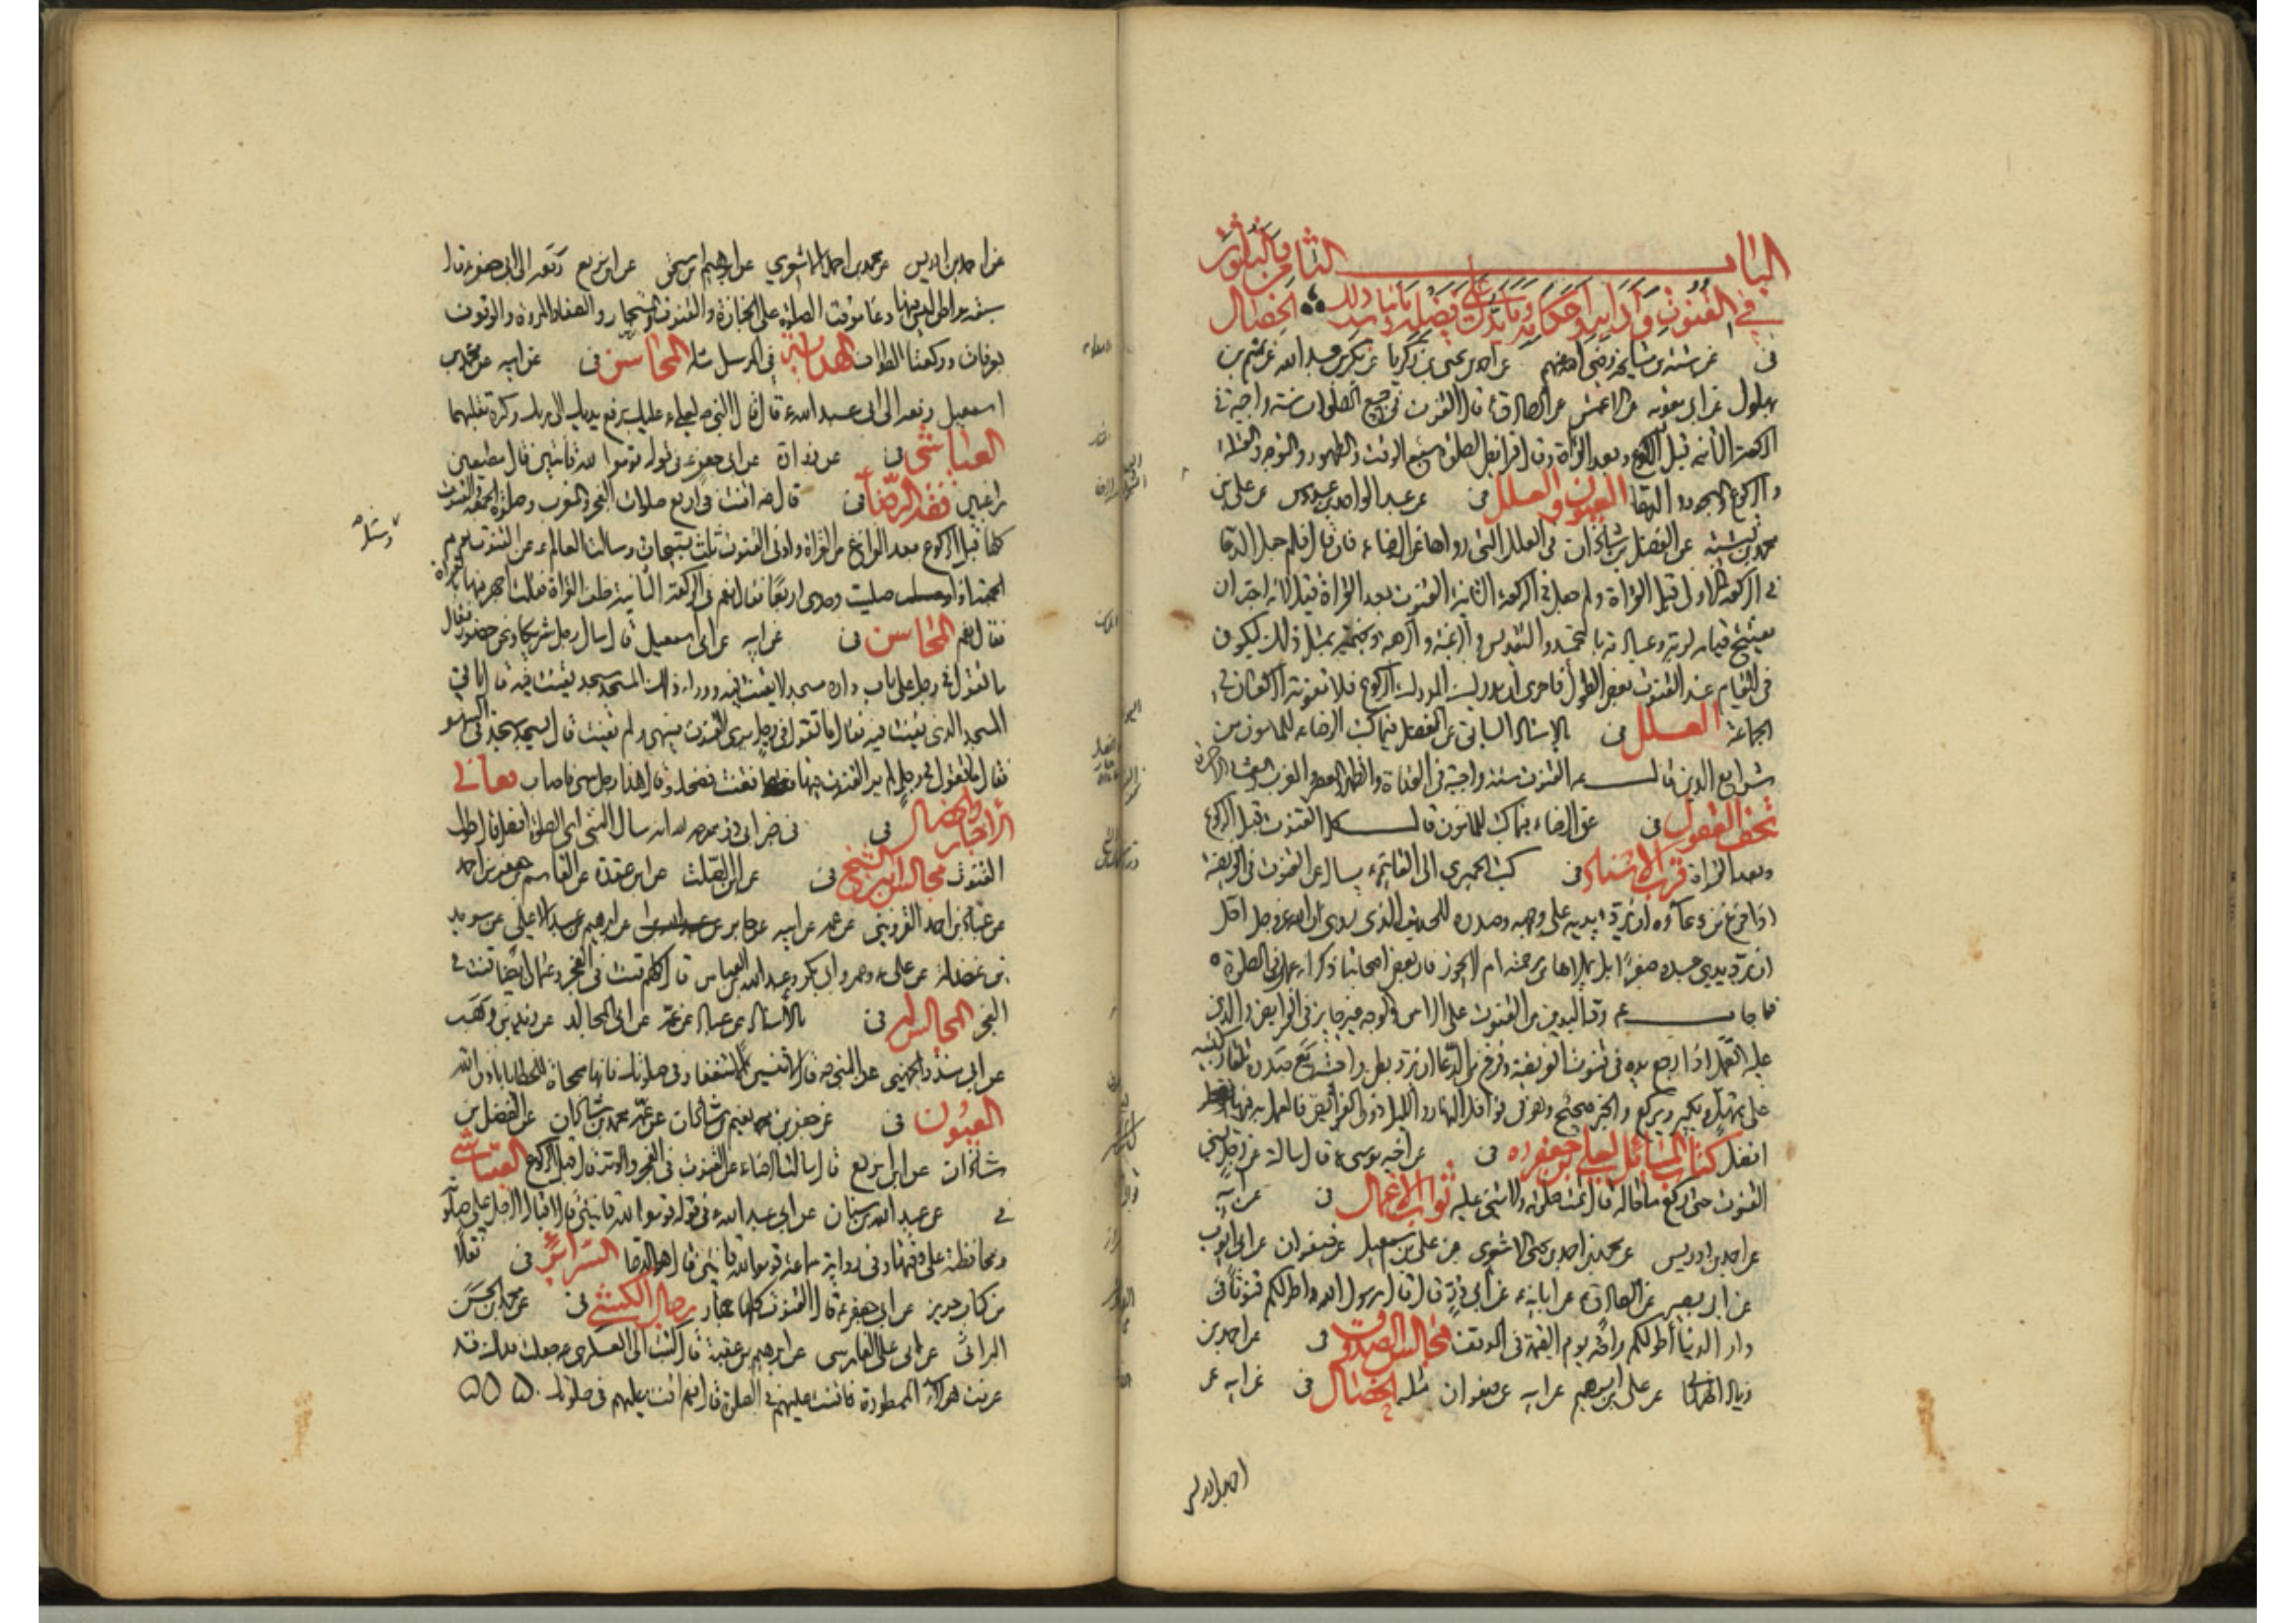 الباب الثامن والثلثون
في القنوت وآدابه واحكامه وما يدل على فضله وما يناسب ذلك الخصال
في عن ستة من مشايخه رضي الله عنهم عن احمد بن يحيى بن زكريا عن بكر بن عبد الله عن تميم بن
بهلول عن ابي معوية عن الاعمش عن الصادق ع قال القنوت في جميع الصلوات سنة واجبة في
الركعة الثانية قبل الركوع وبعد القراءة وقال فرائض الصلوة سبع الوقت والطهور والتوجه والقبلة
والركوع والسجود والدعا العيون والعلل في عن عبد الواحد بن عبدوس عن علي بن
محمد بن قتيبة عن الفضل بن شاذان في العلل التي رواها عن الرضا ع فان قال فلم جعل الدعا
في الركعة الاولى قبل القراءة ولم جعل في الركعة الثانية القنوت بعد القراءة قيل لانه احب ان
يفتتح قيامه لربه وعبادته بالتحميد والتقديس والرغبة والرهبة ويختمه بمثل ذلك ليكون
في القيام عند القنوت بعض الطول فاحرى ان يدرك المدرك الركوع فلا تفوته الركعتان في
الجماعة العلل في بالاسناد السابق عن الفضل فيما كتب الرضا ع للمامون من
شرايع الدين قال القنوت سنة واجبة في الغداة والظهر والعصر والمغرب والعشاء الاخرة
تحف العقول في عن الرضا ع فيما كتب للمامون قال كل القنوت قبل الركوع
وبعد القراءة قرب الاسناد في كتب الحميري الى القايم ع يسأله عن القنوت في الفريضة
اذا فرغ من دعائه ان يرد يديه على وجهه وصدره للحديث الذي روي ان الله عز وجل اجل
ان يرد يدي عبده صفرا بل يملاها من رحمته ام لا يجوز فان بعض اصحابنا ذكر انه عمل في الصلوة
فاجاب ع رد اليدين من القنوت على الراس والوجه غير جايز في الفرايض والذي
عليه العمل اذا رجع يده في قنوت الفريضة وفرغ من الدعا ان يرد بطن راحتيه مع صدره تلقاء ركبتيه
على تمهل ويكبر ويركع والخبر صحيح وهو في نوافل النهار والليل دون الفرائض والعمل به فيها
افضل كتاب المسائل لعلي بن جعفر في عن اخيه موسى ع قال سالته عن رجل نسي
القنوت حتى ركع ما حاله قال تمت صلوته ولا شيء عليه ثواب الاعمال في عن ابيه
عن احمد بن ادريس عن محمد بن احمد بن يحيى الاشعري عن علي بن اسمعيل عن صفوان عن ابي ايوب
عن ابي بصير عن الصادق ع عن ابائه ع عن ابي ذر قال قال رسول الله ص اطولكم قنوتا في
دار الدنيا اطولكم راحة يوم القيمة في الموقف مجالس الصدوق في عن احمد بن
زياد الهمداني عن علي بن ابرهيم عن ابيه عن صفوان مثله الخصال في عن ابيه عن
احمد بن ادريس
عن احمد بن ادريس عن محمد بن احمد الاشعري عن ابرهيم بن اسحق عن ابن بزيع رفعه الى ابي جعفر ع قال
سبعة مواطن ليس فيها دعا موقت الصلوة على الجنازة والقنوت والمستجار والصفا والمروة والوقوف
بعرفات وركعتا الطواف الهداية في مرسل مثله المحاسن في عن ابيه عن محمد بن
اسمعيل رفعه الى ابي عبد الله ع قال قال النبي ص لعلي ع عليك برفع يديك الى ربك وكثرة تقلبهما
العياشي في عن زرارة عن ابي جعفر ع في قوله قوموا لله قانتين قال مطيعين
راغبين فقه الرضا في قال ع اقنت في اربع صلوات الفجر والمغرب وصلوة الجمعة القنوت
كلها قبل الركوع بعد الفراغ من القراءة وادنى القنوت ثلث تسبيحات وسالت العالم ع عن القنوت يوم
الجمعة اذا صليت وحدي اربعا فقال نعم في الركعة الثانية خلف القراءة فقلت اجهر فيها بالقراءة
فقال نعم المحاسن في عن ابيه عن ابي اسمعيل قال سال رجل شريكا ونحن حضور فقال
ما تقول في رجل على باب داره مسجد لا يقنت فيه ووراء ذلك المسجد مسجد يقنت فيه قال ياتي
المسجد الذي يقنت فيه فقال ما تقول في رجل يرى القنوت فسهى ولم يقنت قال يسجد سجدتي السهو
فقال ما تقول في رجل لم ير القنوت فسها فقنت فضحك وقال هذا رجل سهى فاصاب معاني
الاخبار والخصال في في خبر ابي ذر رحمه الله انه سال النبي ص اي الصلوة افضل قال طول
القنوت مجالس ابن الشيخ في عن ابن الصلت عن ابن عقدة عن القاسم بن جعفر بن احمد
عن عباد بن احمد القزويني عن عمه عن ابيه عن جابر عن ابرهيم بن عبد الاعلى عن سويد
بن غفلة عن علي ع وعمر وابي بكر وعبد الله بن العباس قال كلهم قنت في الفجر وعثمان ايضا قنت في
الفجر المجالس له في بالاسناد عن عباد عن عمه عن ابي المجالد عن زيد بن وهب
عن ابي منذر الجهني عن النبي ص قال لا تنسين الاستغفار في صلوتك فانها ممحاة للخطايا باذن الله
العيون في عن جعفر بن نعيم بن شاذان عن عمه محمد بن شاذان عن الفضل بن
شاذان عن ابن بزيع قال سالت الرضا ع عن القنوت في الفجر والوتر قال قبل الركوع العياشي
في عن عبد الله بن سنان عن ابي عبد الله ع في قوله قوموا لله قانتين قال اقبال الرجل على صلوته
ومحافظته على وقتها وفي رواية سماعة قوموا لله قانتين قال هو الدعا السرائر في نقلا
من كتاب حريز عن ابي جعفر ع قال القنوت كلها جهار رجال الكشي في عن محمد بن الحسن
البراثي عن ابي علي الفارسي عن ابرهيم بن عقبة قال كتبت الى العسكري ع جعلت فداك قد
عرفت هؤلاء الممطورة فاقنت عليهم في الصلوة قال نعم اقنت عليهم في صلوتك